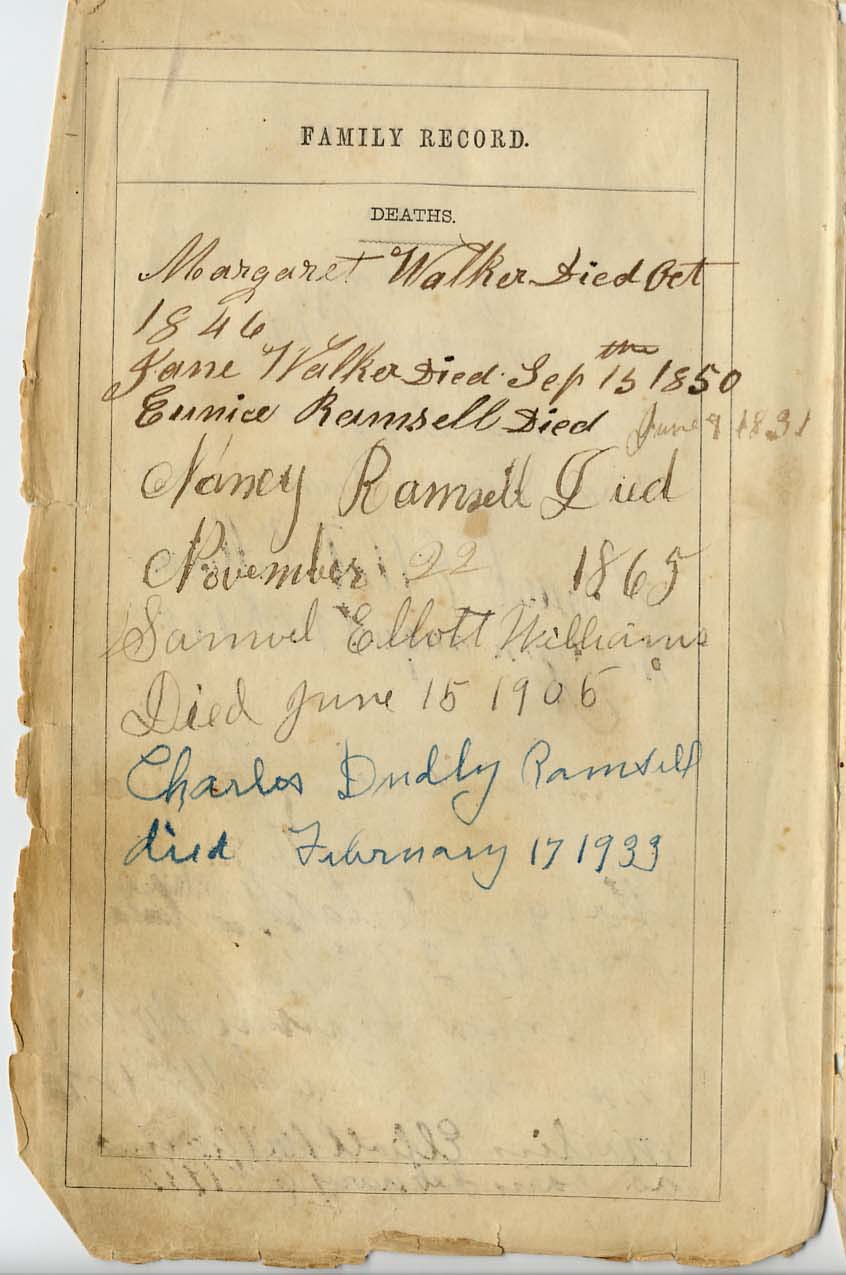 FAMILY RECORD.
DEATHS.
Margaret Walker Died Oct
1846
Jane Walker Died Sep 15 the 1850
Eunice Ramsell Died June 9 1831
Nancy Ramsell Died
November 22 1865
Samuel Ellott Williams
Died June 15 1905
Charles Dudly Ramsell
died February 17 1933